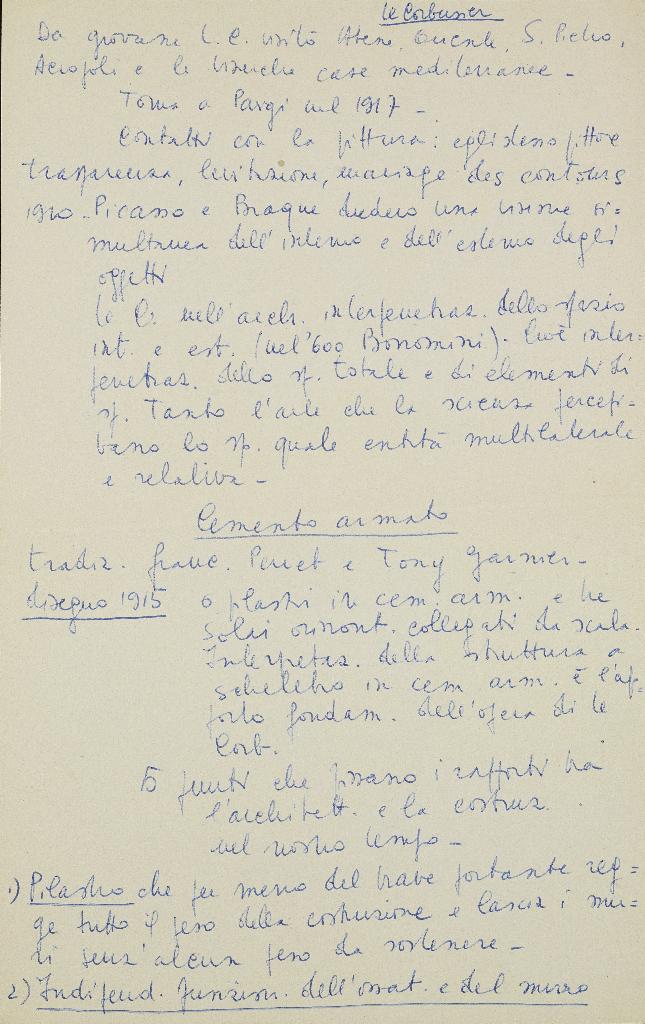 Le Corbusier
Da giovane L. C. visitò Atene, Oriente, S. Pietro,
Acropoli e le bianche case mediterranee -
Torna a Parigi nel 1917 -
Contatti con la pittura: egli stesso pittore
trasparenza, levitazione, mariage des contours
1910 - Picasso e Braque diedero una visione si=
multanea dell'interno e dell'esterno degli
oggetti
Le C. nell'arch. interpenetraz. dello spazio
int. e est. (nel '600 Borromini). Cioè inter=
penetraz. dello sp. totale e di elementi di
sp. Tanto l'arte che la scienza percepi=
vano lo sp. quale entità multilaterale
e relativa -
Cemento armato
tradiz. franc. Perret e Tony Garnier -
disegno 1915 6 plastri in cem. arm. e tre
solai orizzont. collegati da scala.
Interpretaz. della struttura a
scheletro in cem. arm. è l'ap=
porto fondam. dell'opera di le
Corb.
5 punti che fissano i rapporti tra
l'architett. e la costruz.
nel nostro tempo -
1) Pilastro che per mezzo del trave portante reg=
ge tutto il peso della costruzione e lascia i mu=
ri senz'alcun peso da sostenere -
2) Indipend. funzion. dell'ossat. e del muro